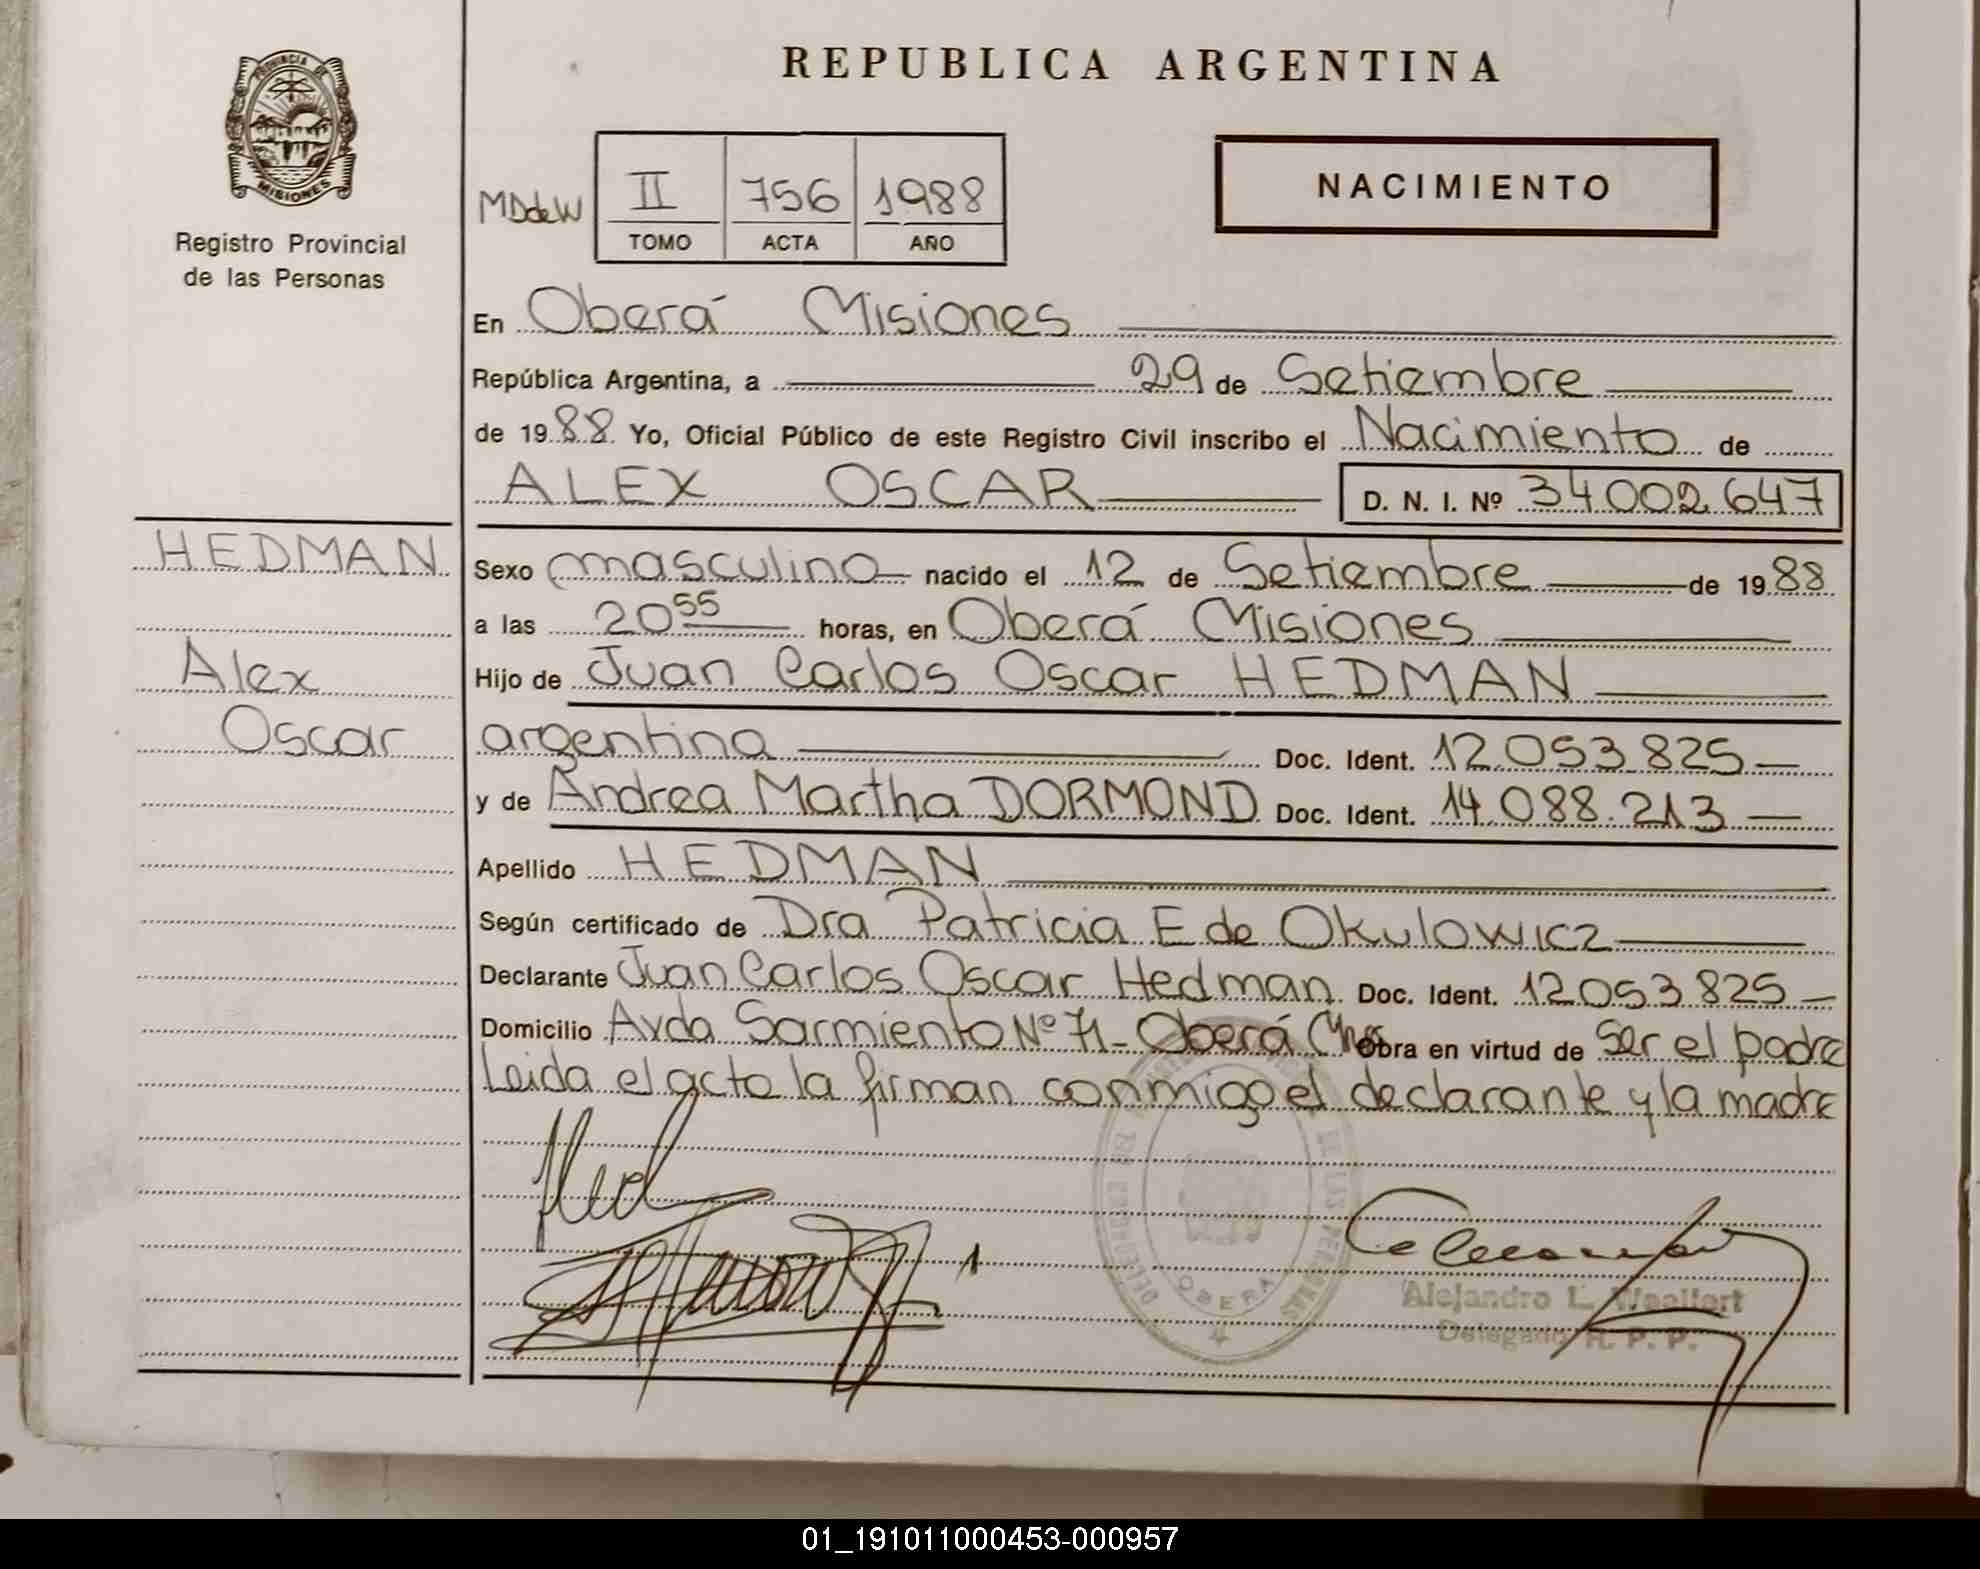 REPUBLICA ARGENTINA
PROVINCIA DE
MISIONES
Registro Provincial
de las Personas
MDdeW
II 756 1988
TOMO ACTA AÑO
NACIMIENTO
En Oberá Misiones
República Argentina, a 29 de Setiembre
de 1988 Yo, Oficial Público de este Registro Civil inscribo el Nacimiento de
ALEX OSCAR D. N. I. Nº 34002647
HEDMAN
Alex
Oscar
Sexo masculino nacido el 12 de Setiembre de 1988
a las 20 55 horas, en Oberá Misiones
Hijo de Juan Carlos Oscar HEDMAN
argentina Doc. Ident. 12.053.825
y de Andrea Martha DORMOND Doc. Ident. 14.088.213
Apellido HEDMAN
Según certificado de Dra Patricia E de Okulowicz
Declarante Juan Carlos Oscar Hedman Doc. Ident. 12053825
Domicilio Avda Sarmiento Nº 71 - Oberá Mnes Obra en virtud de Ser el padre
Leida el acta la firman conmigo el declarante y la madre
DE LAS PERSONAS
OBERA
Alejandro L. Woelfert
Delegado R. P. P.
01_191011000453-000957